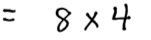 = 8 × 4